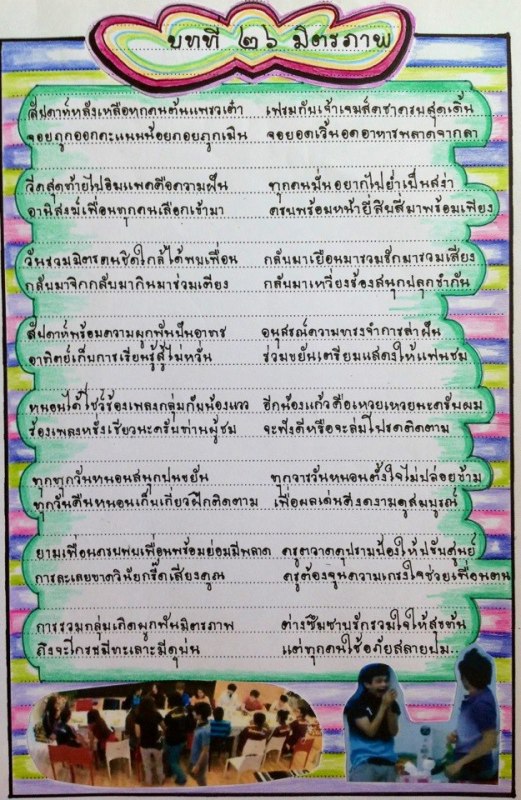 บทที่ ๒๖ มิตรภาพ
สัปดาห์หลังเหลือหกคนต้นแพรวเต๋า เฟรมกันเจ้าเจมส์ตชาครบสุดเต็น
จอยถูกออกคะแนนน้อยคอยถูกเมิน จอยยอดเวิ้นอดอาหารพลาดจากตา
วีคสุดท้ายไปอิมแพคคือความฝัน ทุกคนมั่นอยากไปย่ำเป็นสง่า
อานิสงส์เพื่อนทุกคนเลือกเข้ามา ครบพร้อมหน้ายี่สิบสี่มาพร้อมเพียง
วันรวมมิตรคนชิดใกล้ได้พบเพื่อน กลับมาเยือนมารวมรักมารวมเสียง
กลับมาจิกกลับมากินมาร่วมเตียง กลับมาเหวี่ยงร้องสนุกปลุกขำกัน
สัปดาห์พร้อมความผูกพันปันอาทร อนุสรณ์ความทรงจำการล่าฝัน
อาทิตย์เก็บการเรียนรู้สู้ไม่หวั่น ร่วมขยันเตรียมแสดงให้แฟนชม
หนอนได้โชว์ร้องเพลงกลุ่มกับน้องแวว อีกน้องแก้วคือเหวยเหวยนะครับผม
ร้องเพลงหรั่งเชียวนะครับท่านผู้ชม จะฟังดีหรือจะล่มโปรดติดตาม
ทุกทุกวันหนอนสนุกปนขยัน ทุกวารวันหนอนตั้งใจไม่ปล่อยข้าม
ทุกวันคืนหนอนเก็บเกี่ยวฝึกติดตาม เพื่อผลเด่นส่งดงามดูสมบูรณ์
ยามเพื่อนครบพบเพื่อนพร้อมย่อมมีพลาด ครูตวาดดุปรามน้องให้ปรับศูนย์
การละเลยขาดวินัยกรี๊ดเสียงคูณ ครูต้องจูนความเกรงใจช่วยเพื่อนตน
การรวมกลุ่มเกิดผูกพันมิตรภาพ ต่างซึมซาบรักรวมใจให้สุขต้น
ถึงจะโกรธมีทะเลาะมีดุบ่น แต่ทุกคนใช้อภัยสลายปม..